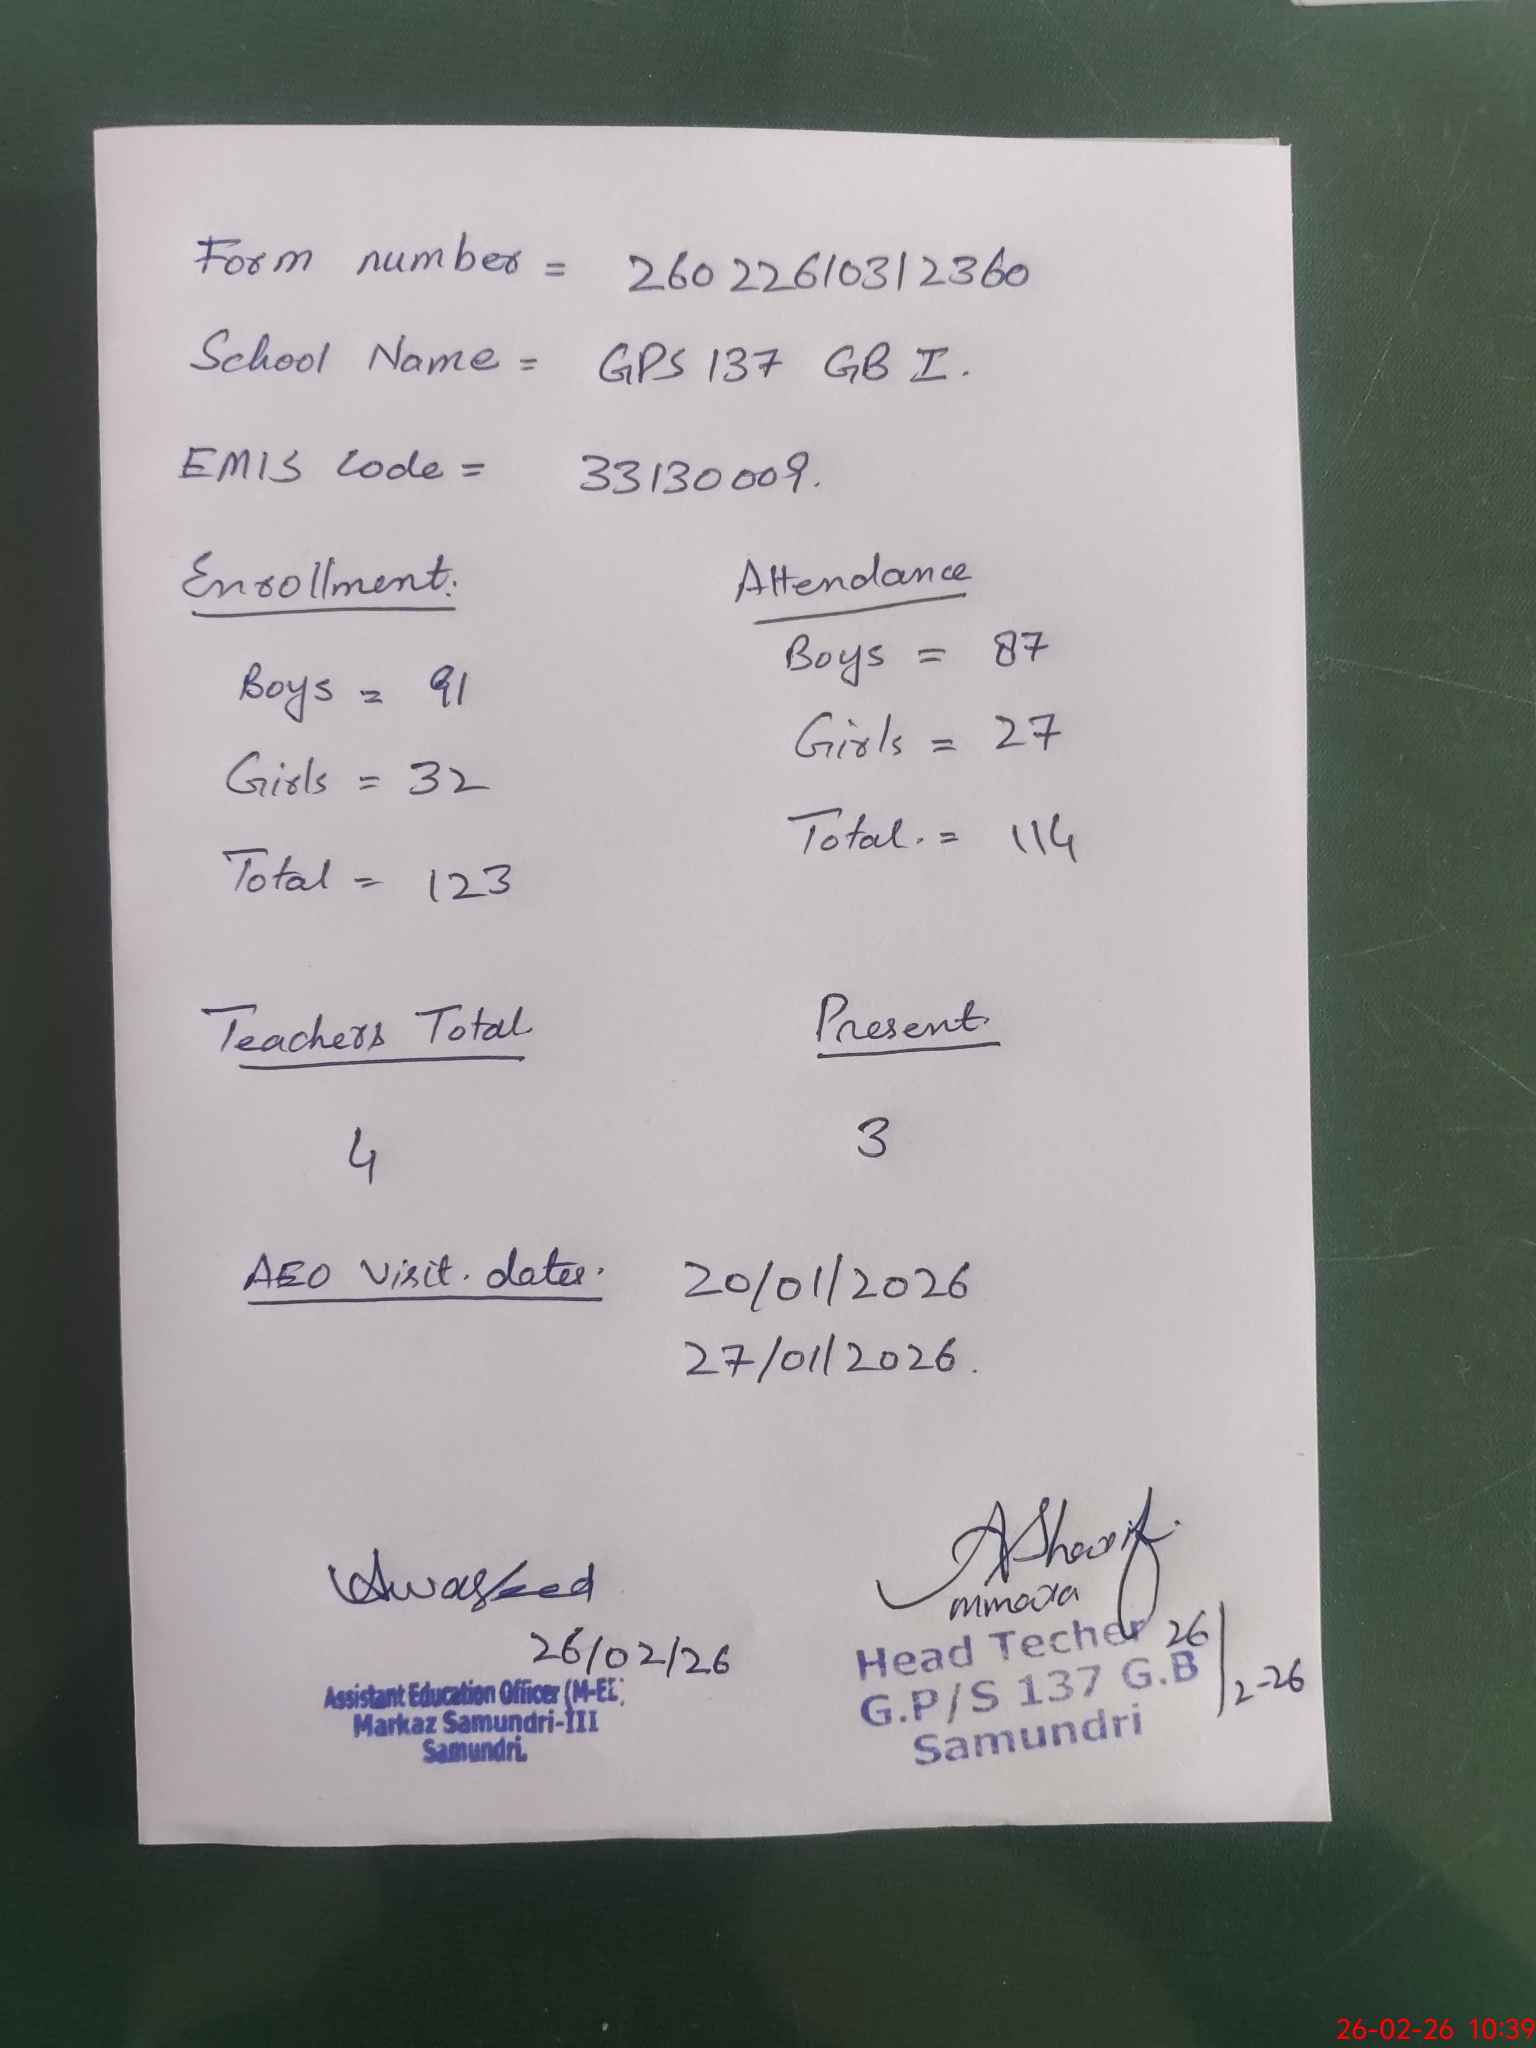 Form number = 26022610312360
School Name = GPS 137 GB I.
EMIS Code = 33130009.
Enrollment. Attendance
Boys = 91 Boys = 87
Girls = 32 Girls = 27
Total = 123 Total. = 114
Teachers Total Present
4 3
AEO Visit. dates. 20/01/2026
27/01/2026.
ASharif
26/02/26
Assistant Education Officer (M-EE)
Markaz Samundri-III
Samundri.
Head Techer 26/2-26
G.P/S 137 G.B
Samundri
26-02-26 10:39